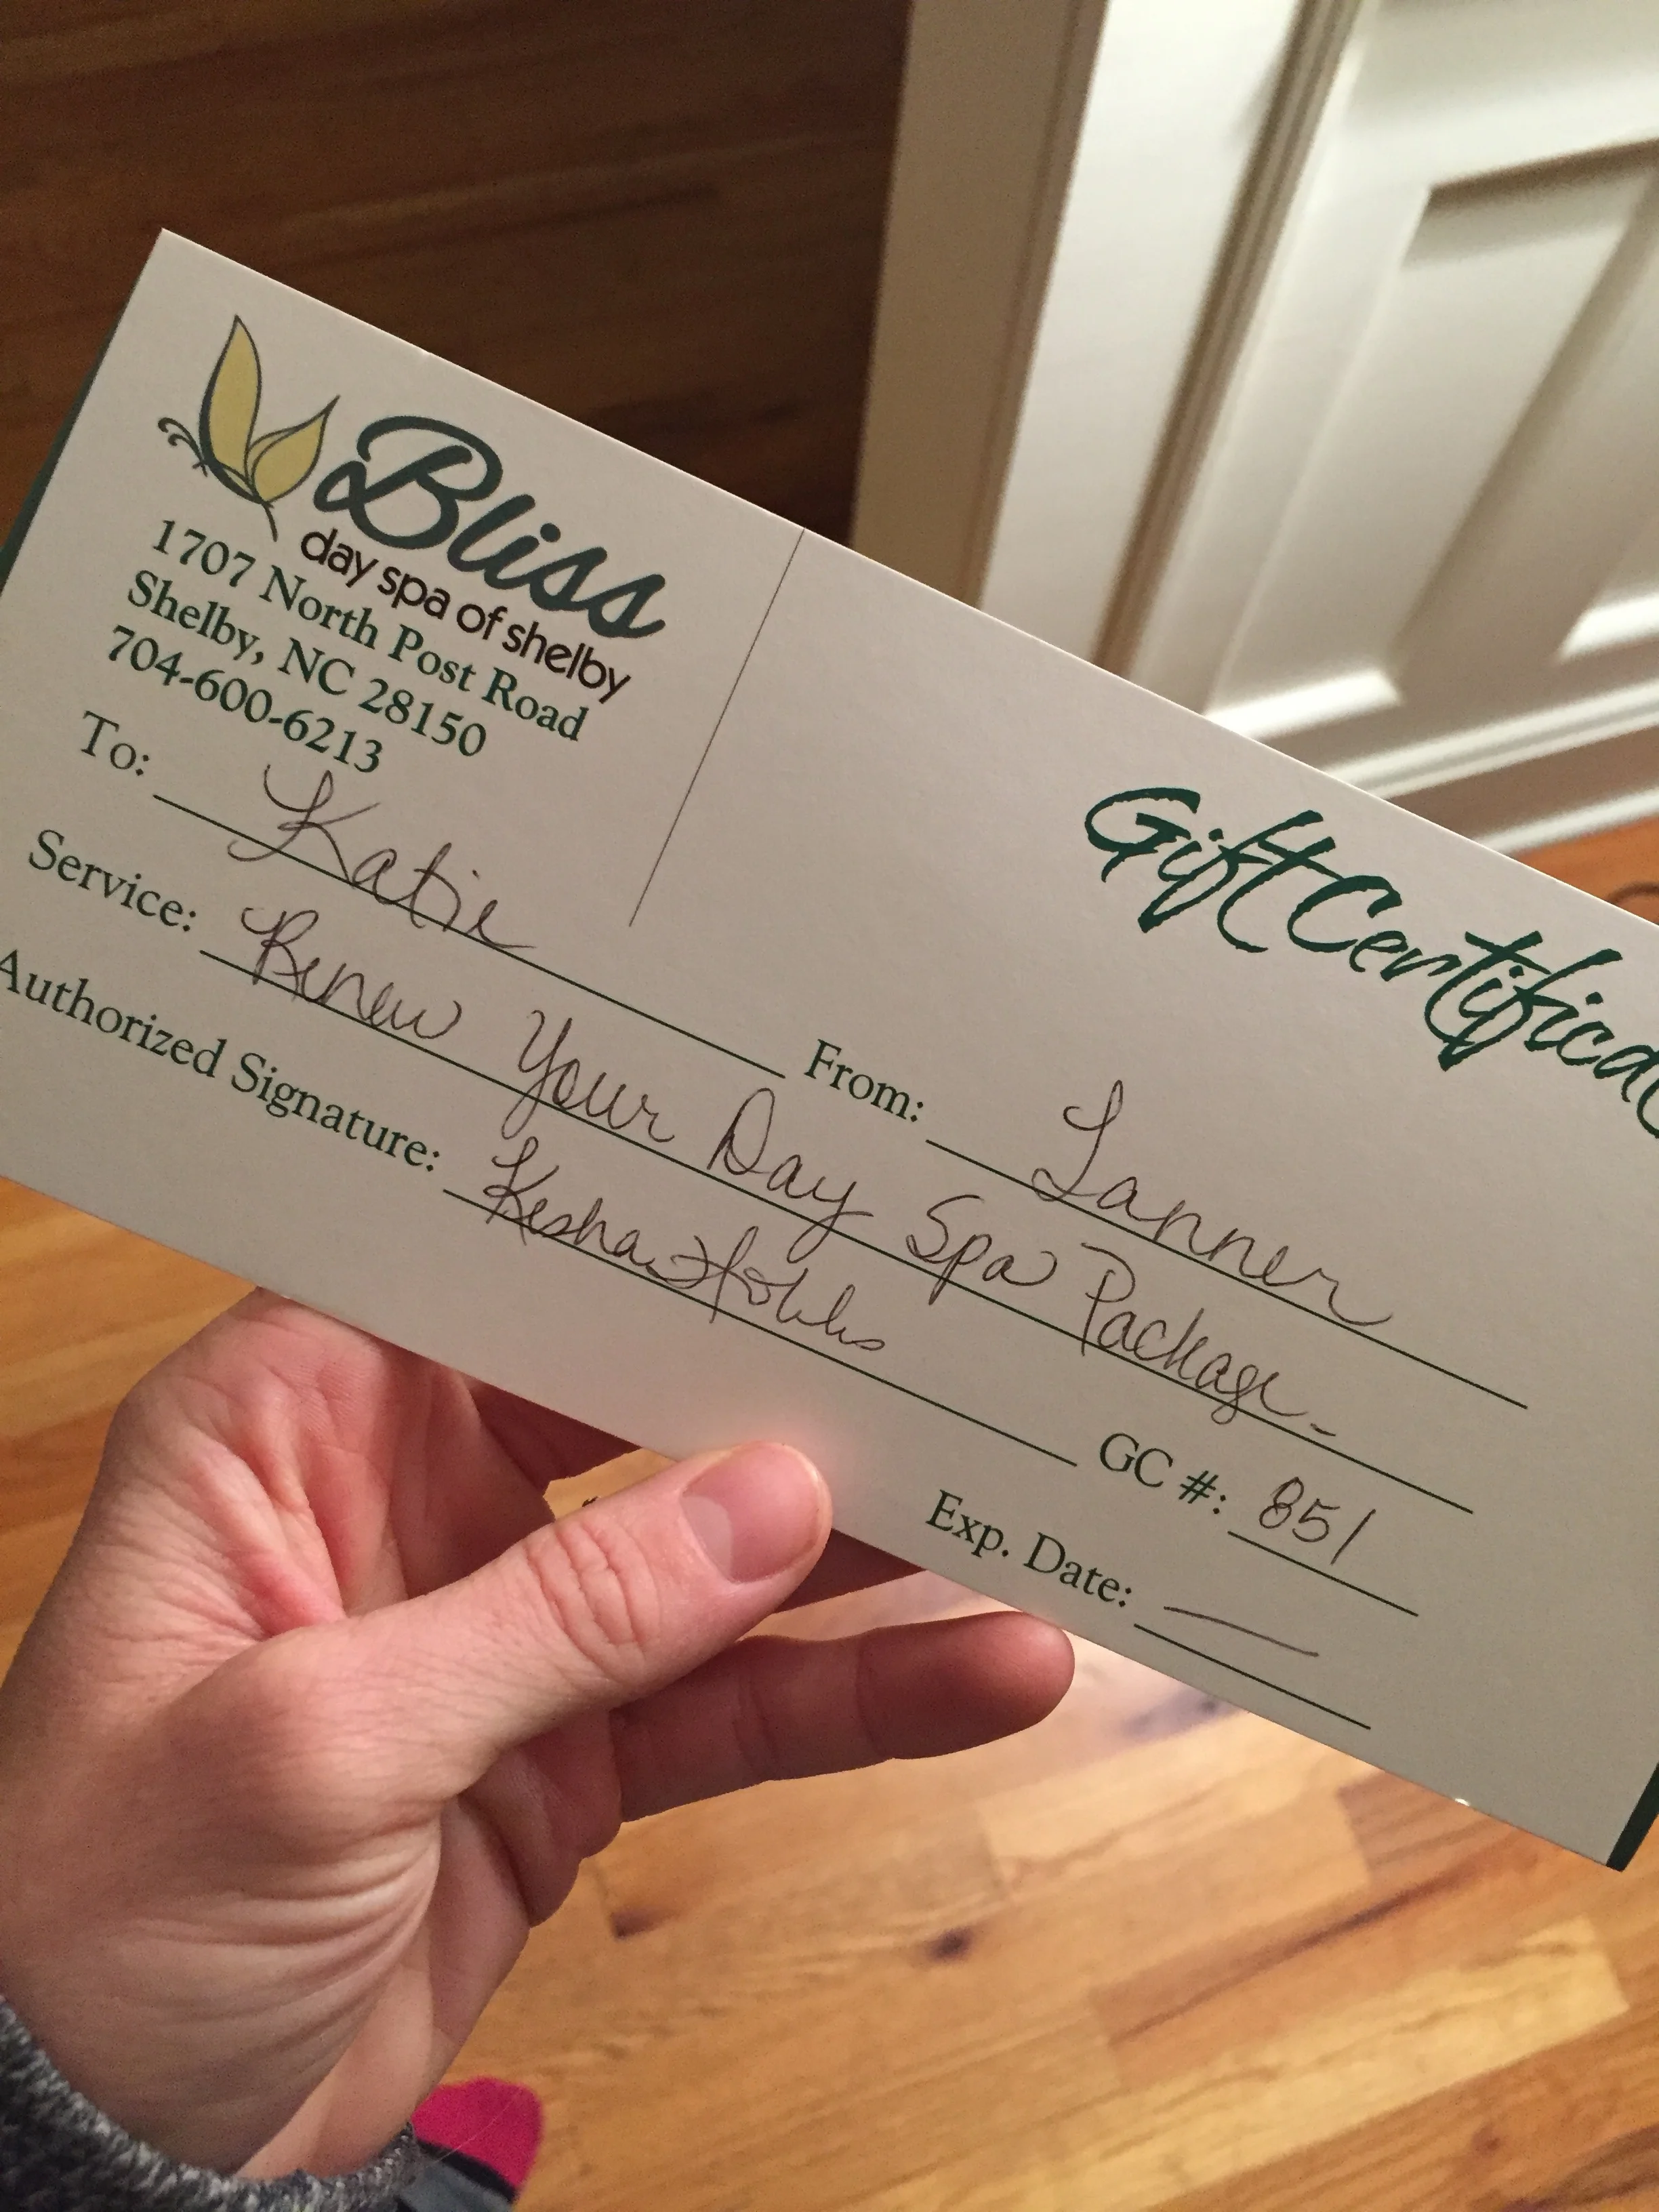 Bliss
day spa of shelby
1707 North Post Road
Shelby, NC 28150
704-600-6213
Gift Certifica
To: Katie From: Tanner
Service: Renew Your Day Spa Package
Authorized Signature: Kesha Hobbs GC #: 851
Exp. Date: —